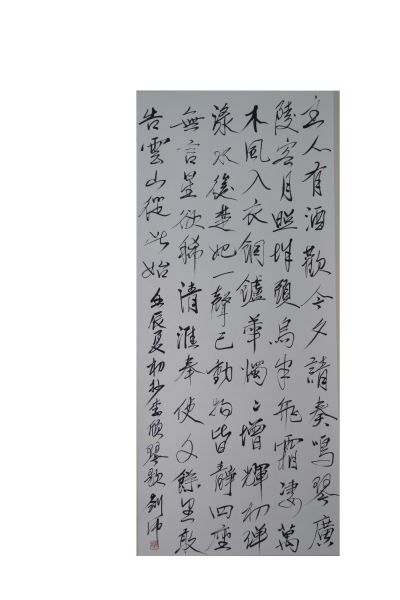 主人有酒歡今夕請奏鳴琴廣
陵客月照城頭烏半飛霜淒萬
木風入衣銅鑪華燭〻增輝初彈
渌水後楚妃一聲已動物皆靜四座
無言星欲稀清淮奉使千餘里敢
告雲山從此始 壬辰夏初抄李頎琴歌